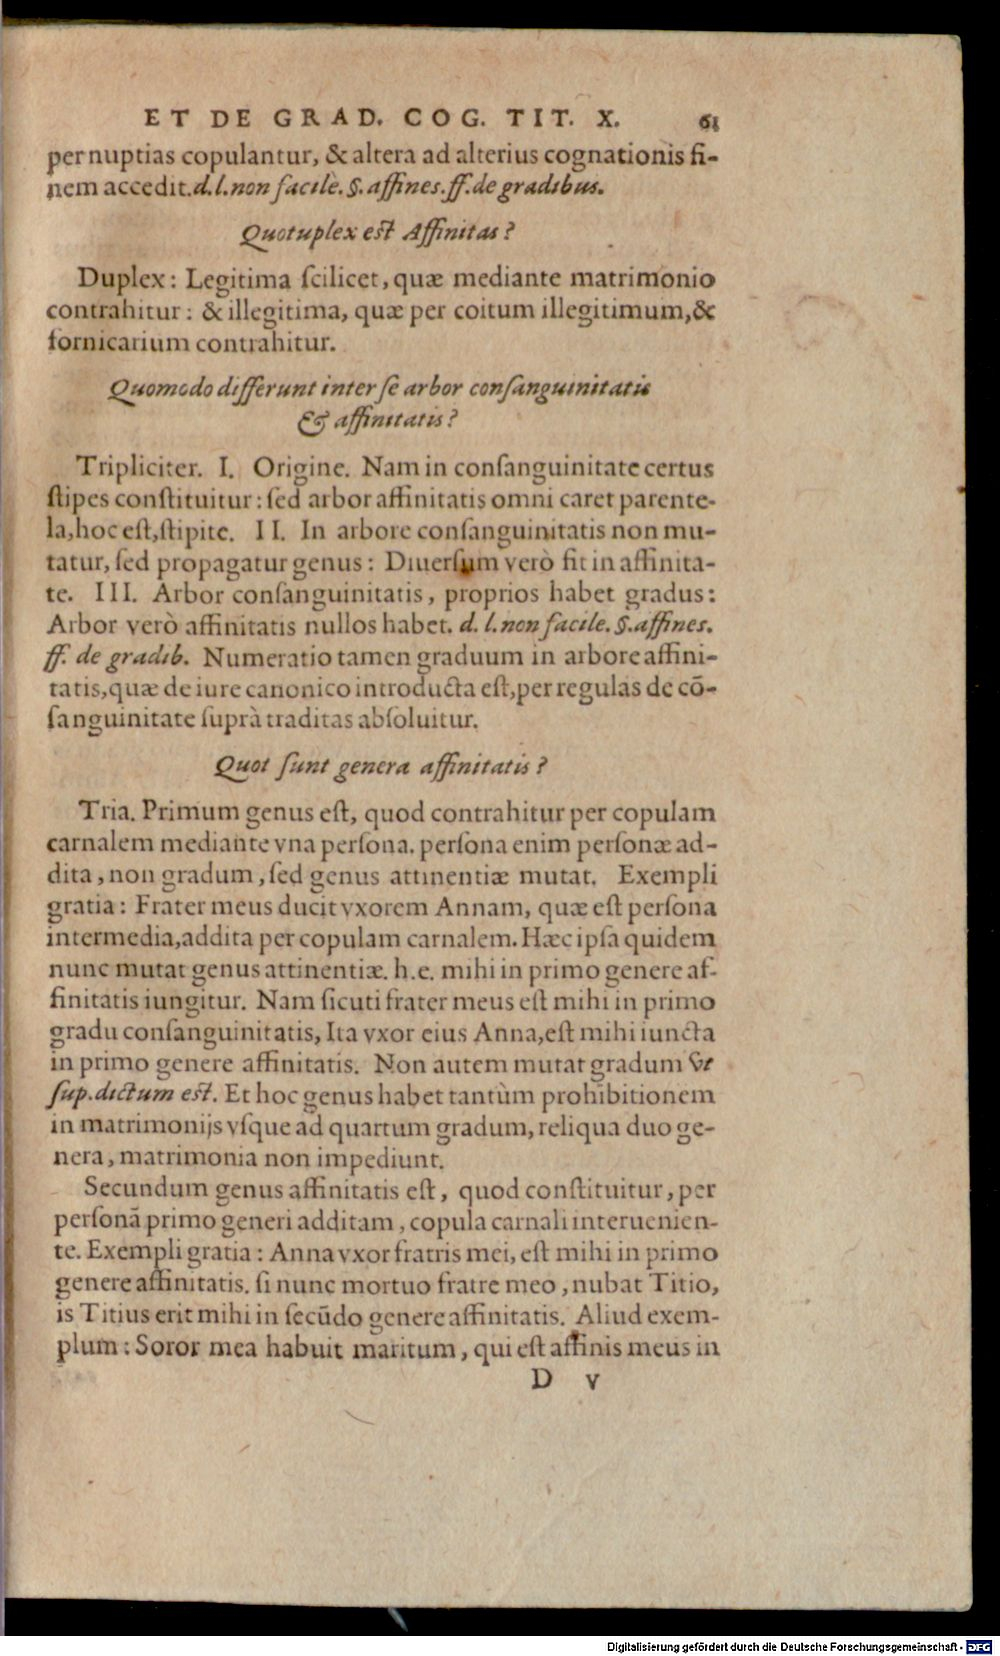 ET DE GRAD. COG. TIT. X. 61
per nuptias copulantur, & altera ad alterius cognationis fi-
nem accedit. d. l. non facile. §. affines. ff. de gradibus.
Quotuplex est Affinitas?
Duplex: Legitima ſcilicet, quæ mediante matrimonio
contrahitur: & illegitima, quæ per coitum illegitimum, &
fornicarium contrahitur.
Quomodo differunt inter ſe arbor conſanguinitatis
& affinitatis?
Tripliciter. I. Origine. Nam in conſanguinitate certus
ſtipes conſtituitur: ſed arbor affinitatis omni caret parente-
la, hoc eſt, ſtipite. II. In arbore conſanguinitatis non mu-
tatur, ſed propagatur genus: Diuerſum verò fit in affinita-
te. III. Arbor conſanguinitatis, proprios habet gradus:
Arbor verò affinitatis nullos habet. d. l. non facile. §. affines.
ff. de gradib. Numeratio tamen graduum in arbore affini-
tatis, quæ de iure canonico introducta eſt, per regulas de cō-
ſanguinitate ſuprà traditas abſoluitur.
Quot ſunt genera affinitatis?
Tria. Primum genus eſt, quod contrahitur per copulam
carnalem mediante vna perſona. perſona enim perſonæ ad-
dita, non gradum, ſed genus attinentiæ mutat. Exempli
gratia: Frater meus ducit vxorem Annam, quæ eſt perſona
intermedia, addita per copulam carnalem. Hæc ipſa quidem
nunc mutat genus attinentiæ. h.e. mihi in primo genere af-
finitatis iungitur. Nam ſicuti frater meus eſt mihi in primo
gradu conſanguinitatis, Ita vxor eius Anna, eſt mihi iuncta
in primo genere affinitatis. Non autem mutat gradum vt
ſup. dictum eſt. Et hoc genus habet tantùm prohibitionem
in matrimonijs vſque ad quartum gradum, reliqua duo ge-
nera, matrimonia non impediunt.
Secundum genus affinitatis eſt, quod conſtituitur, per
perſonā primo generi additam, copula carnali interuenien-
te. Exempli gratia: Anna vxor fratris mei, eſt mihi in primo
genere affinitatis. ſi nunc mortuo fratre meo, nubat Titio,
is Titius erit mihi in ſecūdo genere affinitatis. Aliud exem-
plum: Soror mea habuit maritum, qui eſt affinis meus in
D v
Digitalisierung gefördert durch die Deutsche Forschungsgemeinschaft - DFG